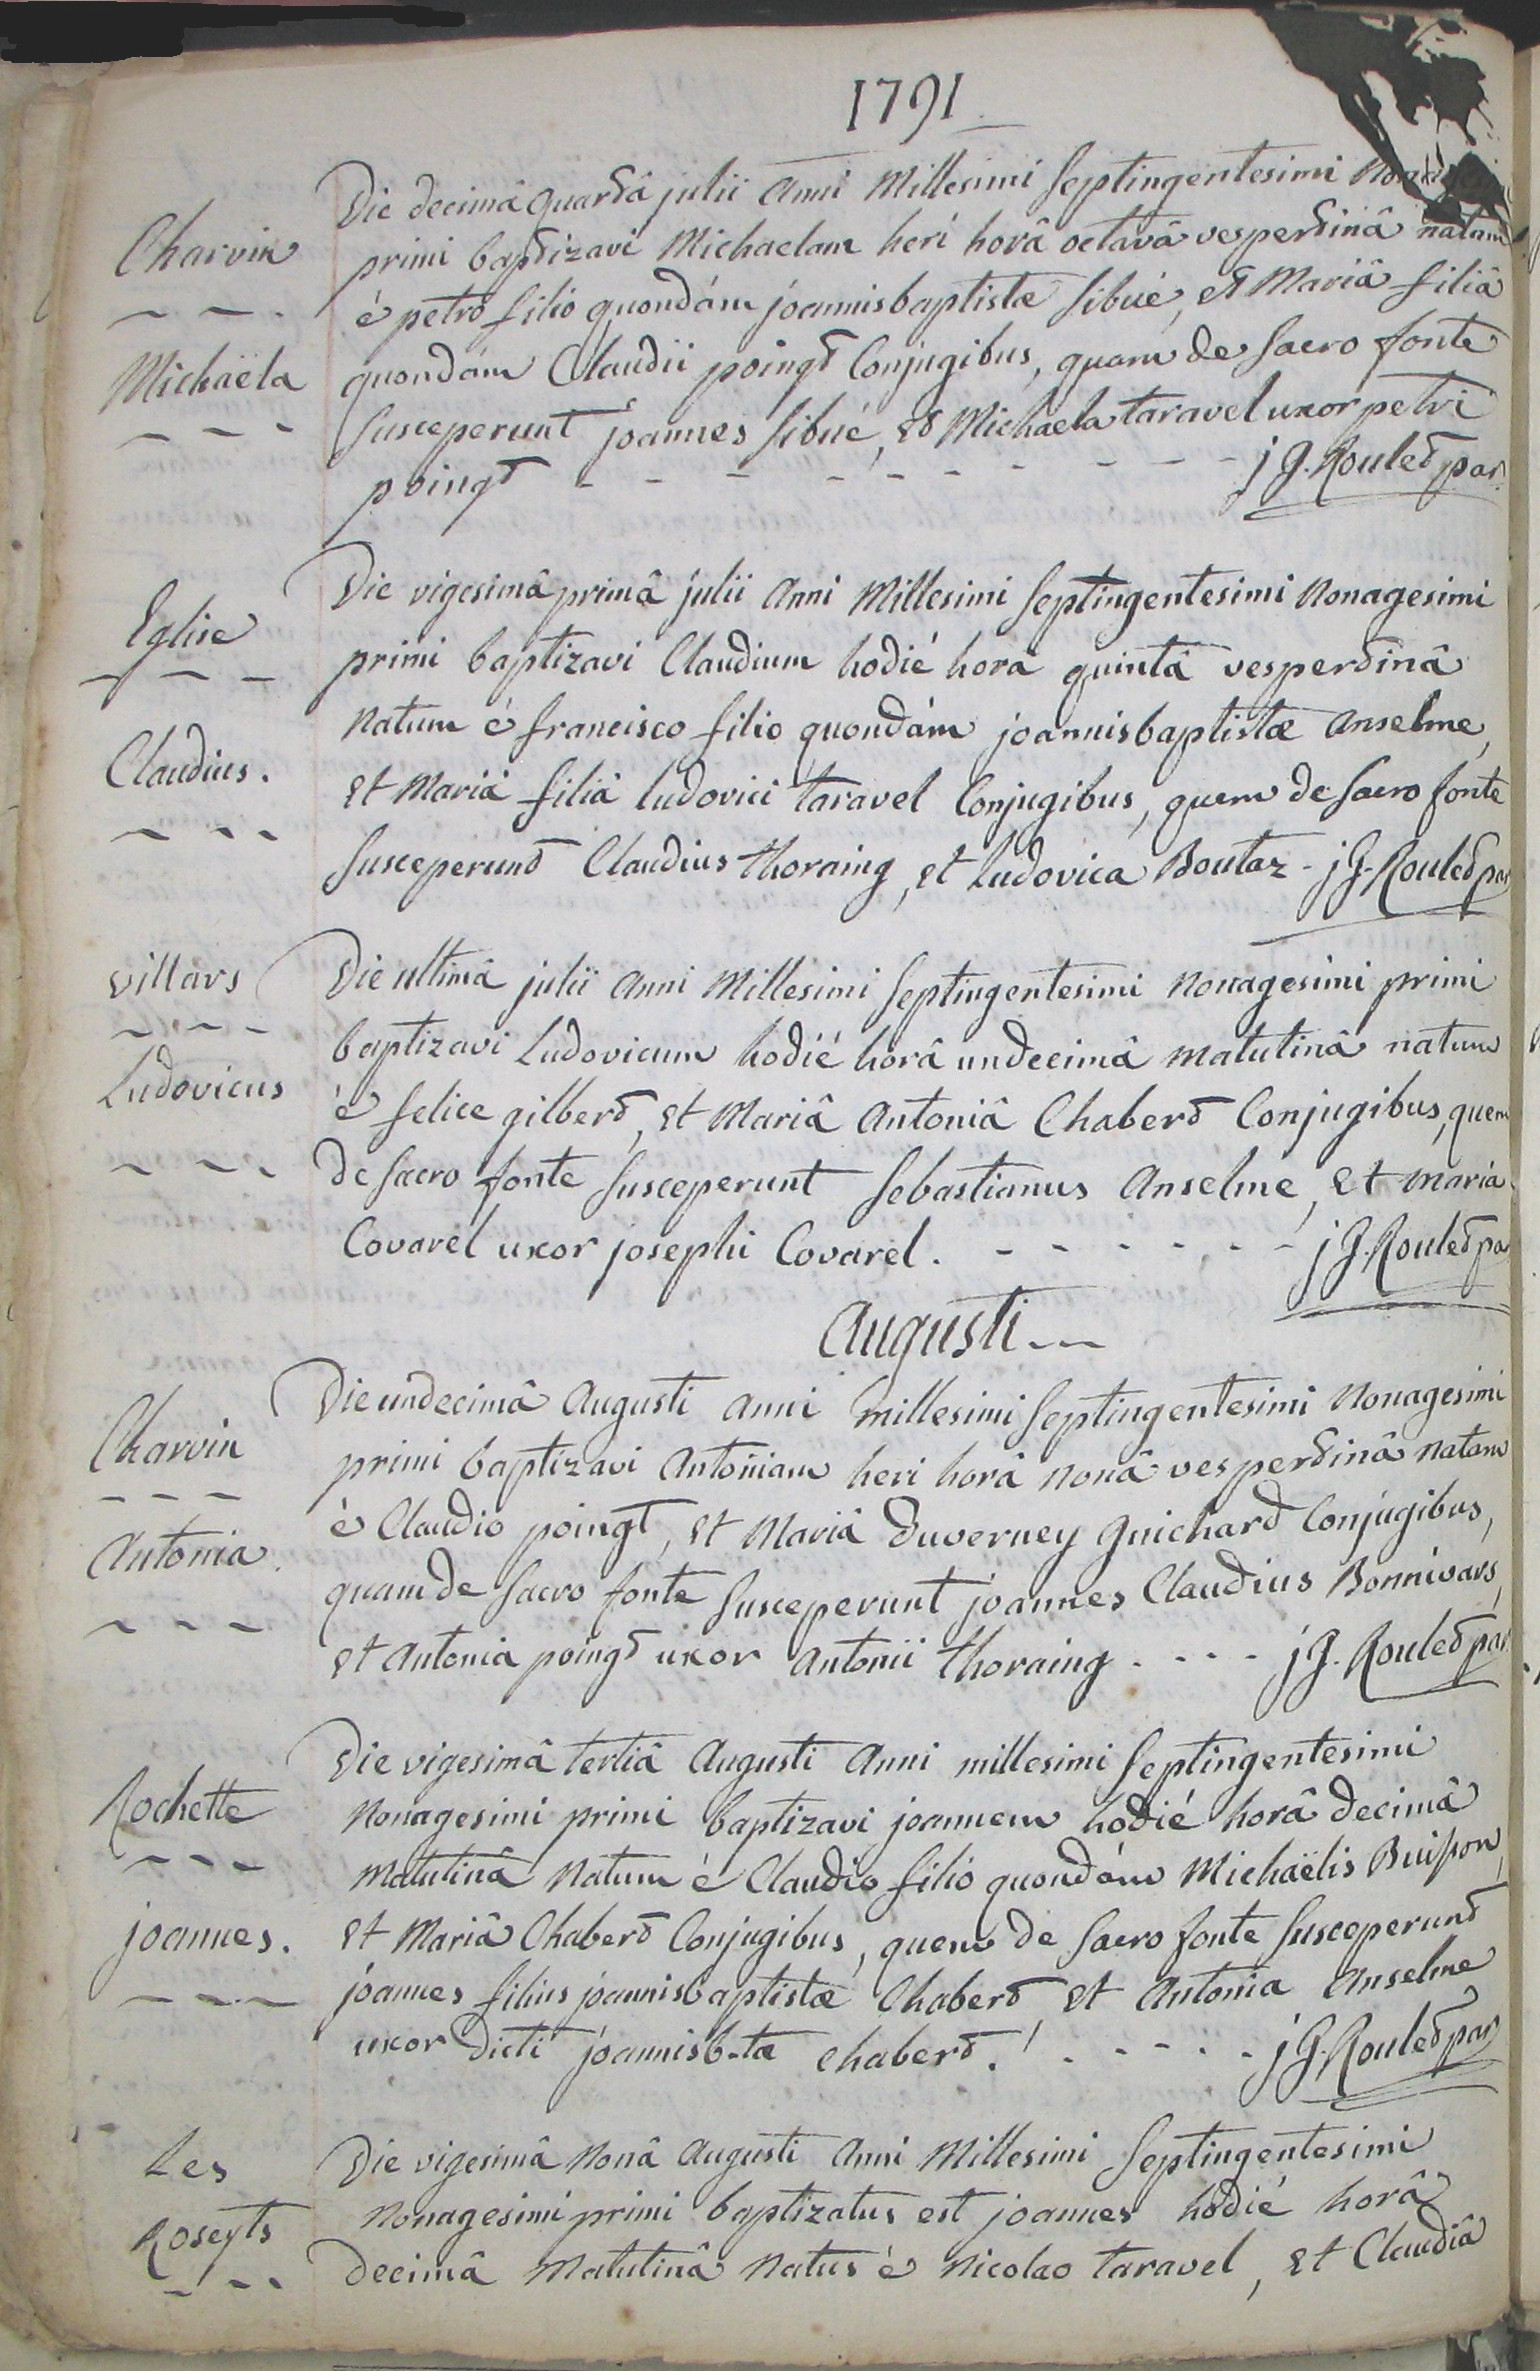 1791
Charvin
Michaëla
Die decimâ quartâ julii anni Millesimi Septingentesimi
primi baptizavi Michaelam heri horâ octavâ vespertinâ natam
è petro filio quondàm joannisbaptistæ Sibué, et Mariâ filiâ
quondàm Claudii poingt Conjugibus, quam de Sacro fonte
Susceperunt joannes Sibué, et Michaela taravel uxor petri
poingt - - - - - - - - - j G. Roulet par.
Eglise
Claudius.
Die vigesimâ primâ julii Anni Millesimi Septingentesimi Nonagesimi
primi baptizavi Claudium hodié horâ quintâ vespertinâ
Natum è francisco filio quondàm joannisbaptistæ Anselme,
et Mariâ filiâ ludovici taravel Conjugibus, quem de Sacro fonte
Susceperunt Claudius thoraing, et Ludovica Boutaz - j G. Roulet par
villars
Ludovicus
Die ultimâ julii Anni Millesimi Septingentesimi Nonagesimi primi
baptizavi Ludovicum hodié horâ undecimâ matutinâ natum
è felice gilbert, et Mariâ Antoniâ Chabert Conjugibus, quem
de Sacro fonte Susceperunt Sebastianus Anselme, et maria
Covarel uxor josephi Covarel. - - - - - - j G. Roulet pa
Augusti - -
Charvin
Antonia.
Die undecimâ Augusti anni millesimi Septingentesimi Nonagesimi
primi baptizavi Antoniam heri horâ nonâ vespertinâ Natam
è Claudio poingt, et Mariâ Duverney Guichard Conjugibus,
quam de Sacro fonte Susceperunt joannes Claudius Bonnivars,
et Antonia poingt uxor Antonii thoraing - - - - j G. Roulet par.
Rochette
joannes.
Die vigesimâ tertiâ Augusti Anni millesimi Septingentesimi
Nonagesimi primi baptizavi joannem hodié horâ decimâ
Matutinâ Natum è Claudio filio quondàm Michaëlis Buisson,
et Mariâ Chabert Conjugibus, quem de Sacro fonte Susceperunt
joannes filius joannisbaptistæ Chabert, et Antonia Anselme
uxor dicti joannisb-tæ chabert. - - - - - j G. Roulet par
Les
Roseyts
Die vigesimâ Nonâ Augusti Anni Millesimi Septingentesimi
Nonagesimi primi baptizatus est joannes hodié horâ
decimâ Matutinâ Natus è Nicolao taravel, et Claudiâ